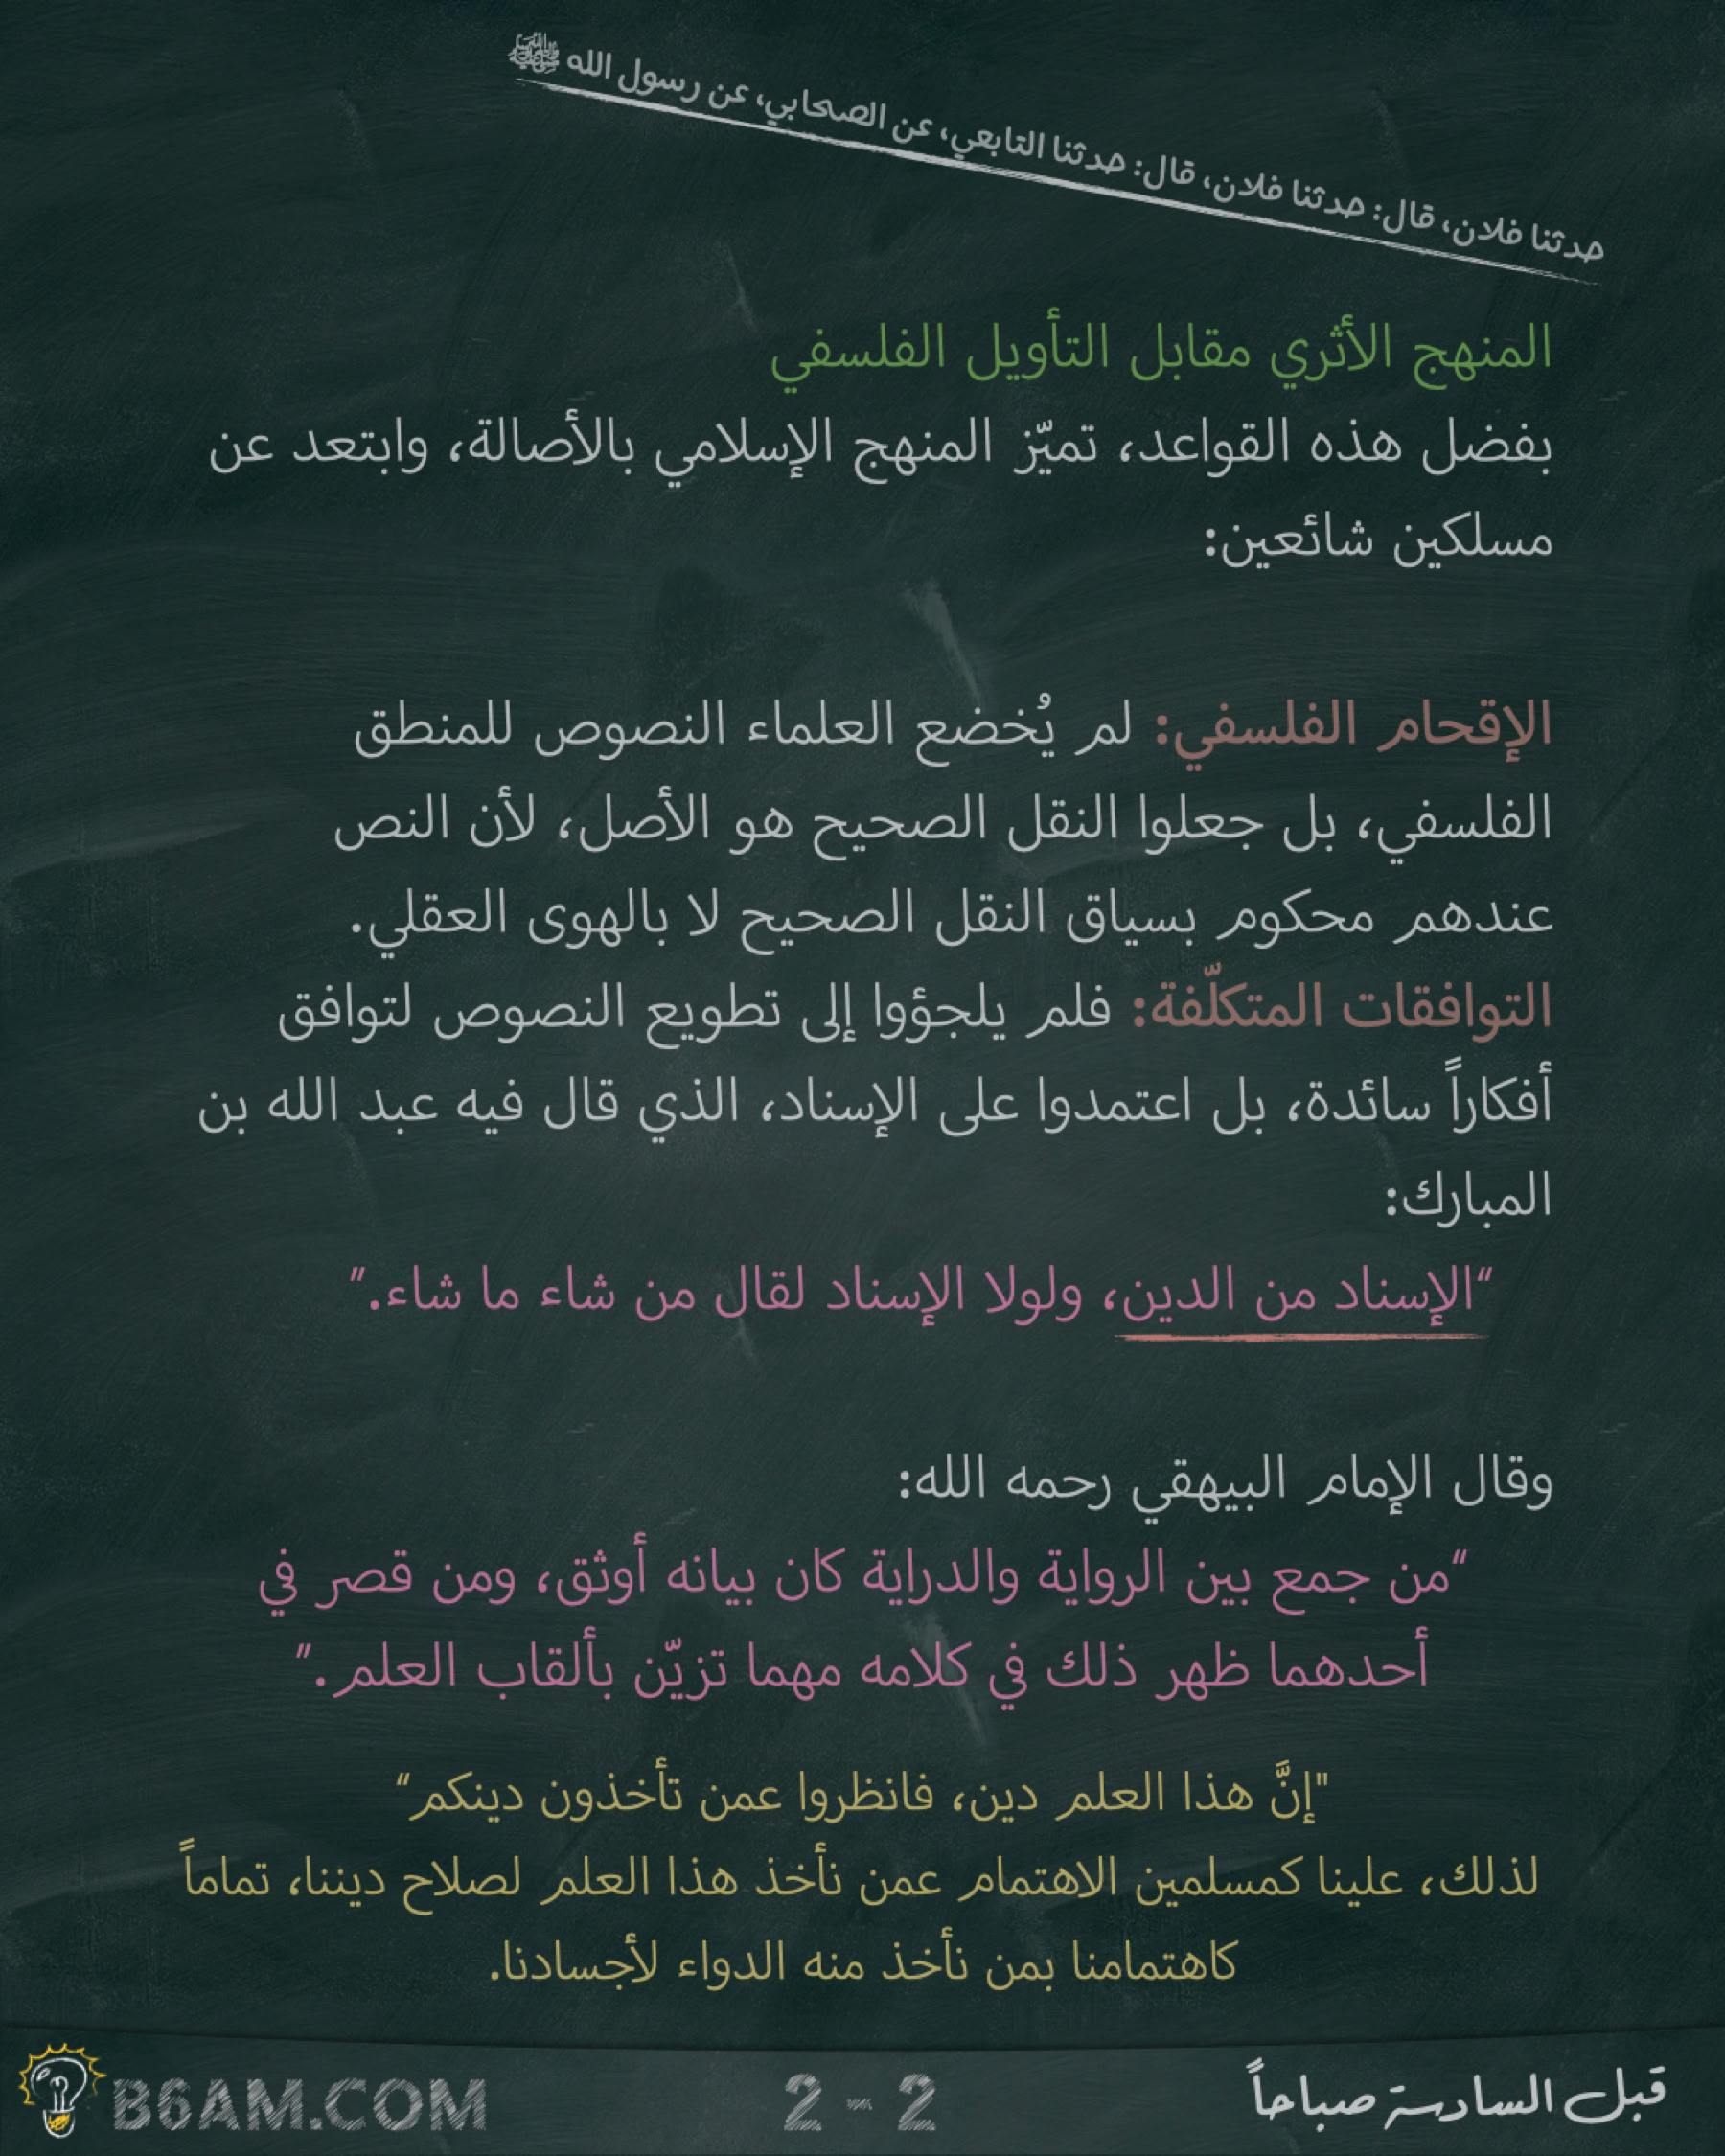 حدثنا فلان، قال: حدثنا فلان، قال: حدثنا التابعي، عن الصحابي، عن رسول الله ﷺ
المنهج الأثري مقابل التأويل الفلسفي
بفضل هذه القواعد، تميّز المنهج الإسلامي بالأصالة، وابتعد عن
مسلكين شائعين:
الإقحام الفلسفي: لم يُخضع العلماء النصوص للمنطق
الفلسفي، بل جعلوا النقل الصحيح هو الأصل، لأن النص
عندهم محكوم بسياق النقل الصحيح لا بالهوى العقلي.
التوافقات المتكلّفة: فلم يلجؤوا إلى تطويع النصوص لتوافق
أفكاراً سائدة، بل اعتمدوا على الإسناد، الذي قال فيه عبد الله بن
المبارك:
“الإسناد من الدين، ولولا الإسناد لقال من شاء ما شاء.”
وقال الإمام البيهقي رحمه الله:
“من جمع بين الرواية والدراية كان بيانه أوثق، ومن قصر في
أحدهما ظهر ذلك في كلامه مهما تزيّن بألقاب العلم.”
"إنَّ هذا العلم دين، فانظروا عمن تأخذون دينكم“
لذلك، علينا كمسلمين الاهتمام عمن نأخذ هذا العلم لصلاح ديننا، تماماً
كاهتمامنا بمن نأخذ منه الدواء لأجسادنا.
قبل السادسة صباحاً
2 - 2
B6AM.COM